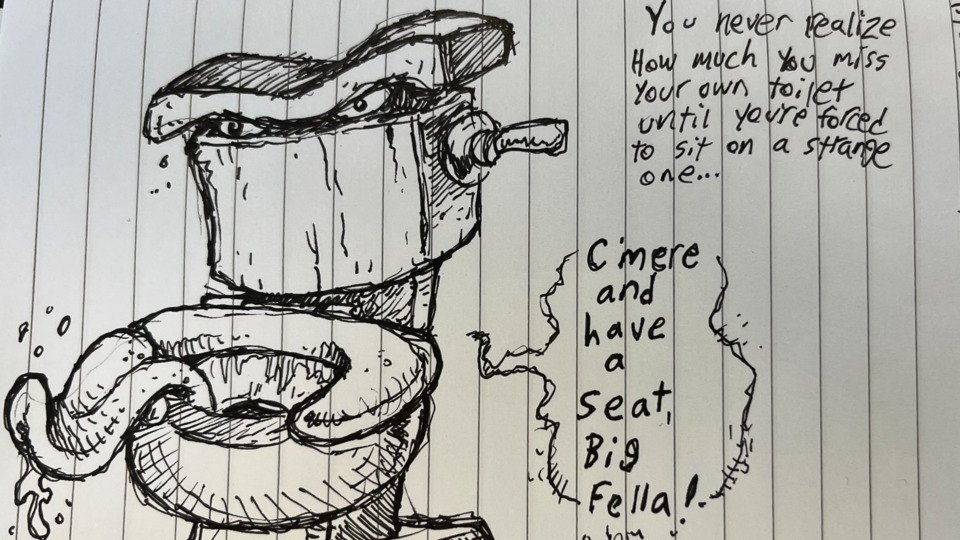 You never realize
How much You miss
Your own toilet
until you're forced
to sit on a strange
one...
C'mere
and
have
a
seat,
Big
Fella!